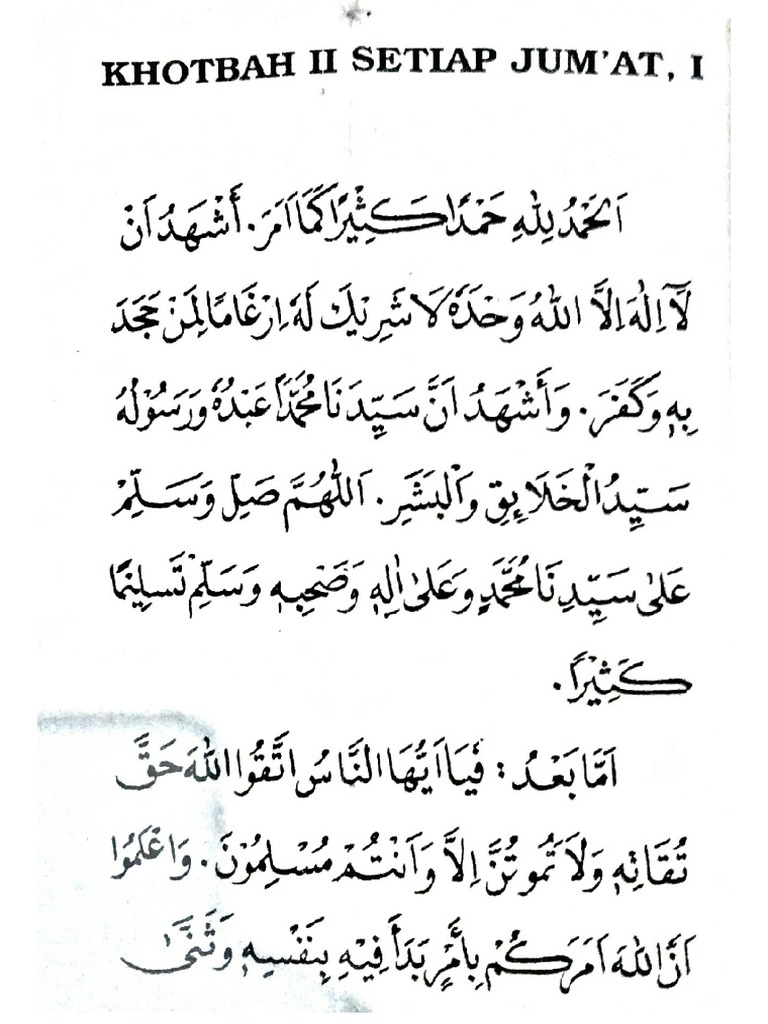 KHOTBAH II SETIAP JUM'AT, I
اَلْحَمْدُ لِلّٰهِ حَمْدًا كَثِيْرًا كَمَا اَمَرَ. أَشْهَدُ اَنْ
لَآ اِلٰهَ اِلَّا اللهُ وَحْدَهٗ لَا شَرِيْكَ لَهٗ اِرْغَامًا لِمَنْ جَحَدَ
بِهٖ وَكَفَرَ. وَأَشْهَدُ اَنَّ سَيِّدَنَا مُحَمَّدًا عَبْدُهٗ وَرَسُوْلُهُ
سَيِّدُ الْخَلَايِقِ وَالْبَشَرِ. اَللّٰهُمَّ صَلِّ وَسَلِّمْ
عَلٰى سَيِّدِنَا مُحَمَّدٍ وَعَلٰى اٰلِهٖ وَصَحْبِهٖ وَسَلِّمْ تَسْلِيْمًا
كَثِيْرًا.
اَمَّا بَعْدُ : فَيَا اَيُّهَا النَّاسُ اتَّقُوا اللهَ حَقَّ
تُقَاتِهٖ وَلَا تَمُوْتُنَّ اِلَّا وَاَنْتُمْ مُسْلِمُوْنَ. وَاعْلَمُوْا
اَنَّ اللهَ اَمَرَكُمْ بِأَمْرٍ بَدَأَ فِيْهِ بِنَفْسِهٖ وَثَنَّى